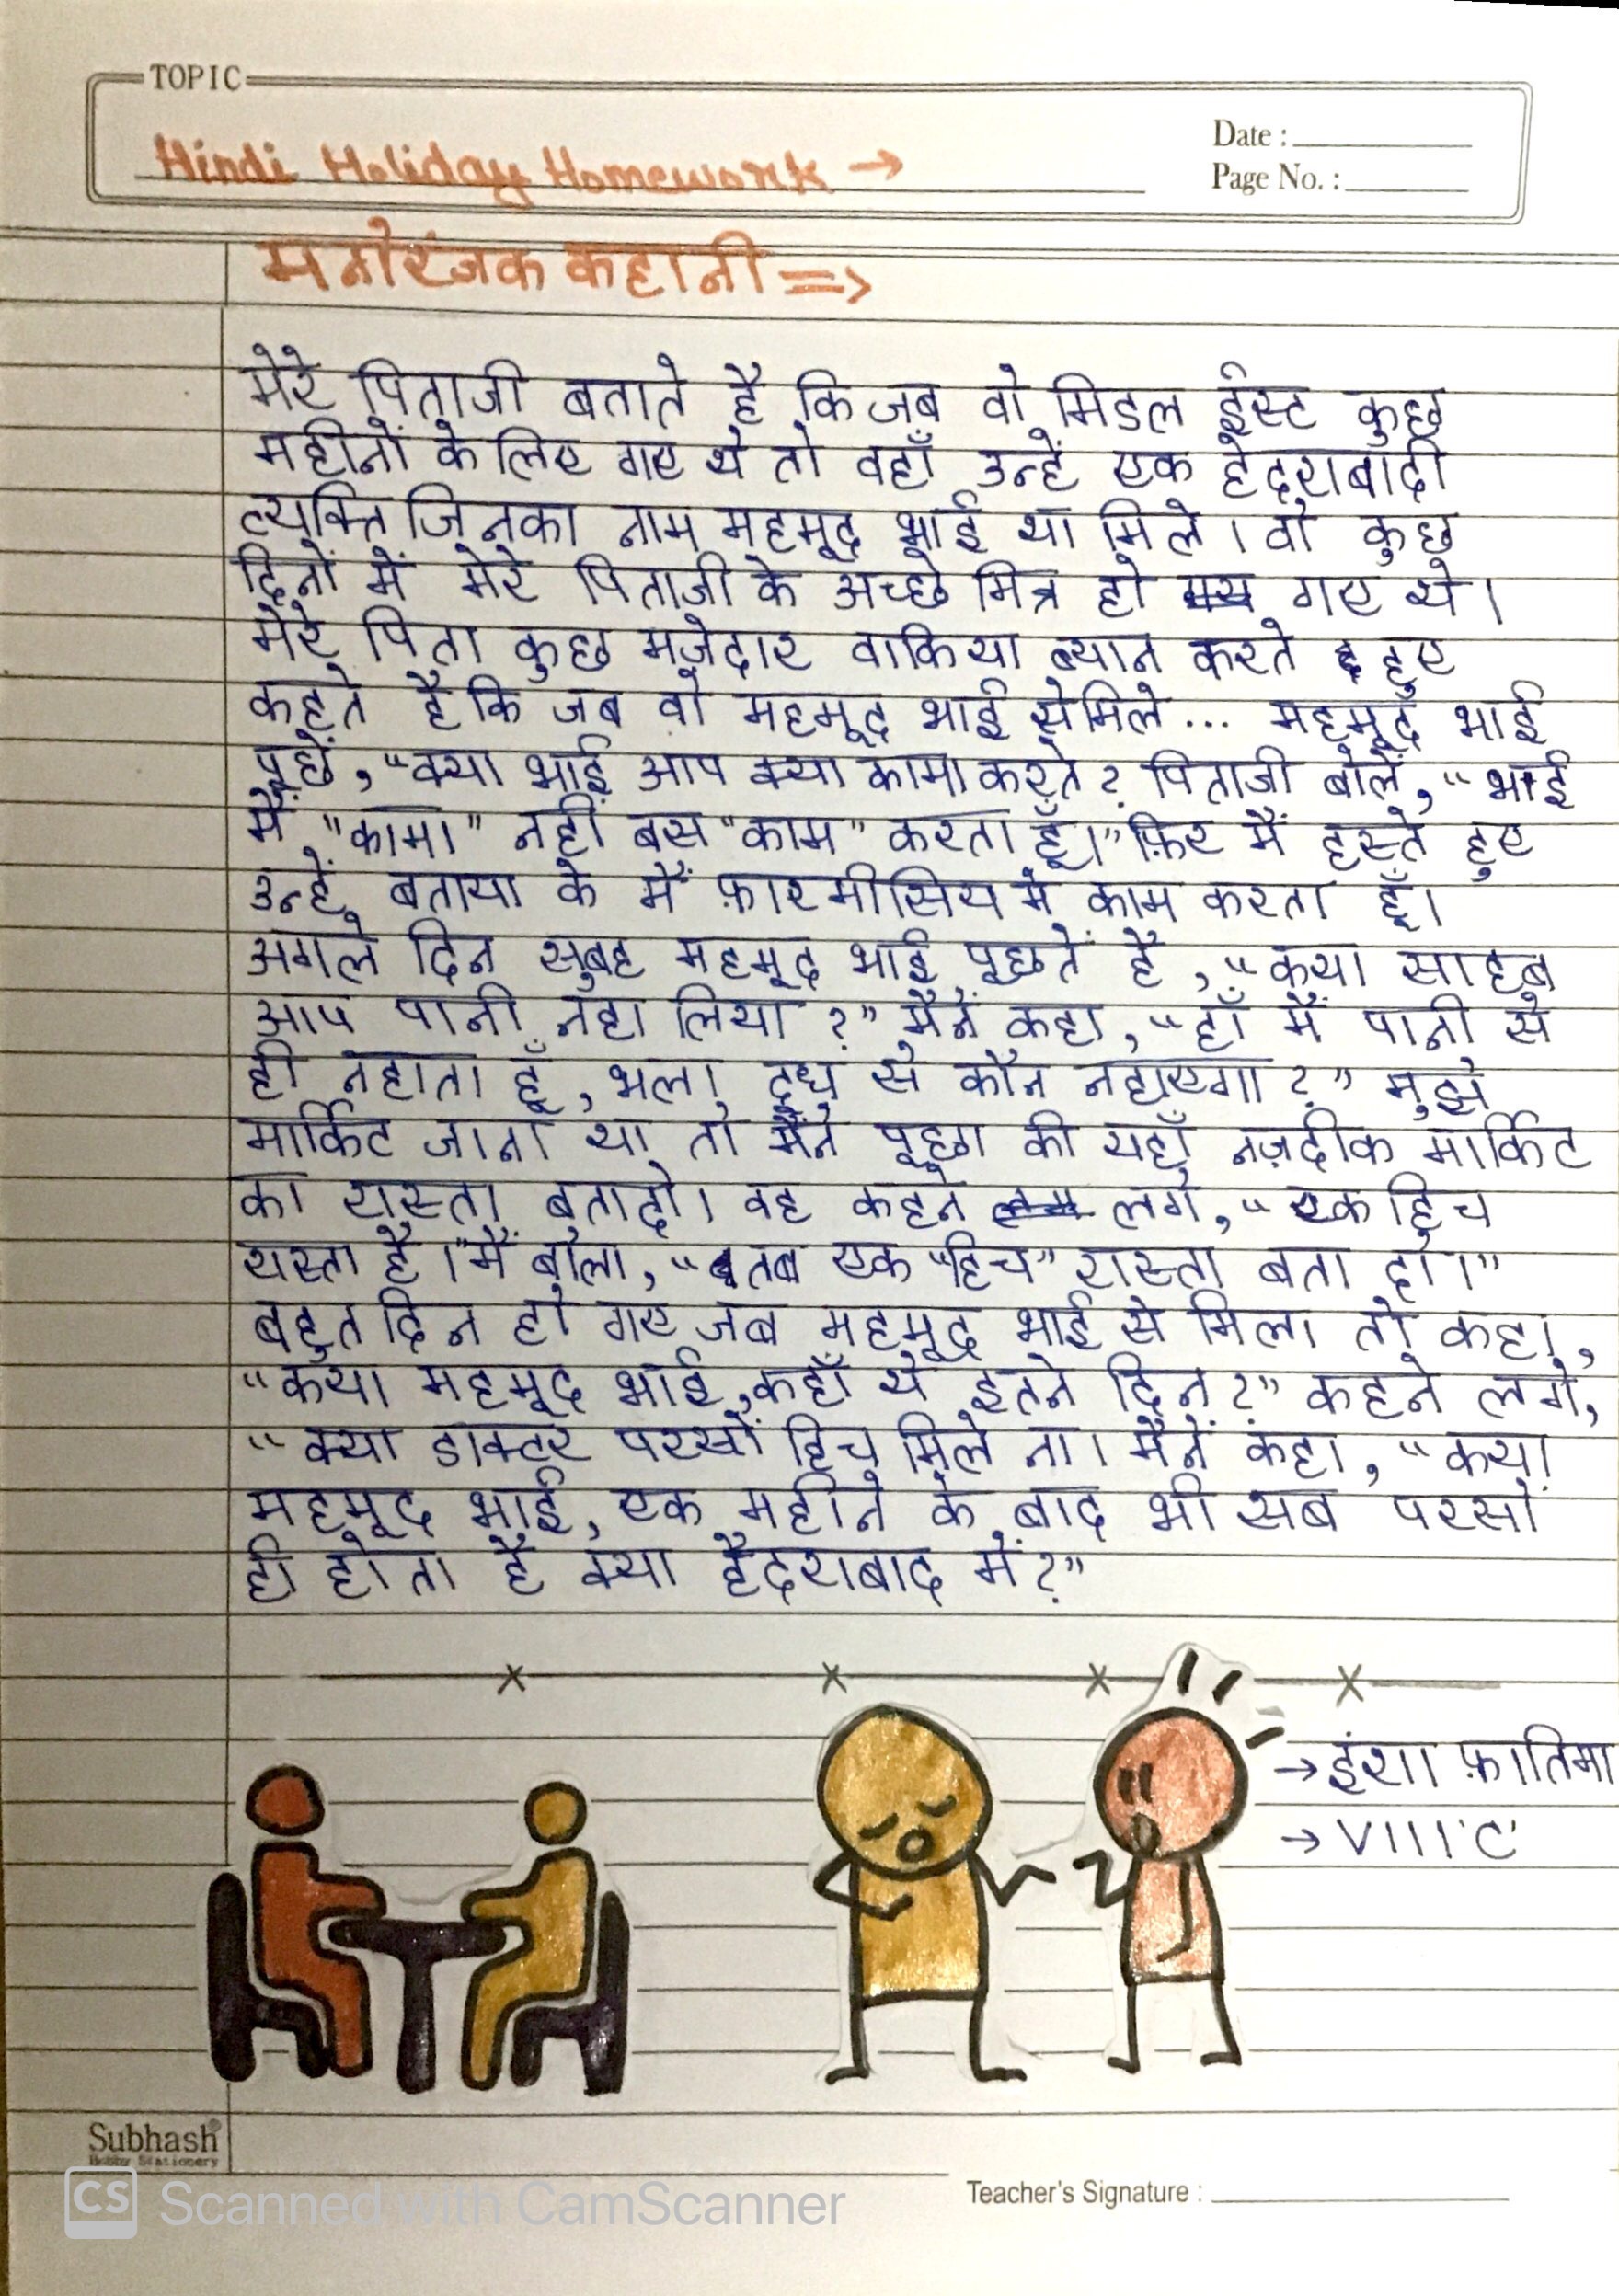 TOPIC
Hindi Holiday Homework →
Date :
Page No. :
मनोरंजक कहानी =>
मेरे पिताजी बताते है कि जब वो मिडल ईस्ट कुछ
महीनों के लिए गए थे तो वहाँ उन्हें एक हेदराबादी
व्यक्ति जिनका नाम महमूद भाई था मिले। वो कुछ
दिनों में मेरे पिताजी के अच्छे मित्र हो गए थे।
मेरे पिता कुछ मज़ेदार वाकिया ब्यान करते हुए
कहते है कि जब वो महमूद भाई से मिले... महमूद भाई
पूछें, “क्या भाई आप क्या कामा करते? पिताजी बोलें, “भाई
में "कामा" नहीं बस "काम" करता हूँ।” फ़िर मैं हस्ते हुए
उन्हें बताया के मैं फ़ारमीसिय में काम करता हूँ।
अगले दिन सुबह महमूद भाई पूछते है, “कया साहब
आप पानी नहा लिया ?” मैनें कहा, “हाँ मैं पानी से
ही नहाता हूँ, भला दूध से कौन नहाएगा ?” मुझे
मार्किट जाना था तो मैंने पूछा की यहाँ नज़दीक मार्किट
का रास्ता बतादो। वह कहने लगे, “एक हिच
रास्ता है।" मैं बोला, “तब एक "हिच" रास्ता बता दो।”
बहुत दिन हो गए जब महमूद भाई से मिला तो कहा,
“कया महमूद भाई, कहाँ थे इतने दिन ?” कहने लगे,
“क्या डाक्टर परसों हिच मिले ना। मैनें कहा, “कया
महमूद भाई, एक महीने के बाद भी सब परसों
ही होता है क्या हैदराबाद में?”
→ इंशा फ़ातिमा
→ VIII 'C'
Subhash
Hobby Stationery
Teacher's Signature :
CS Scanned with CamScanner